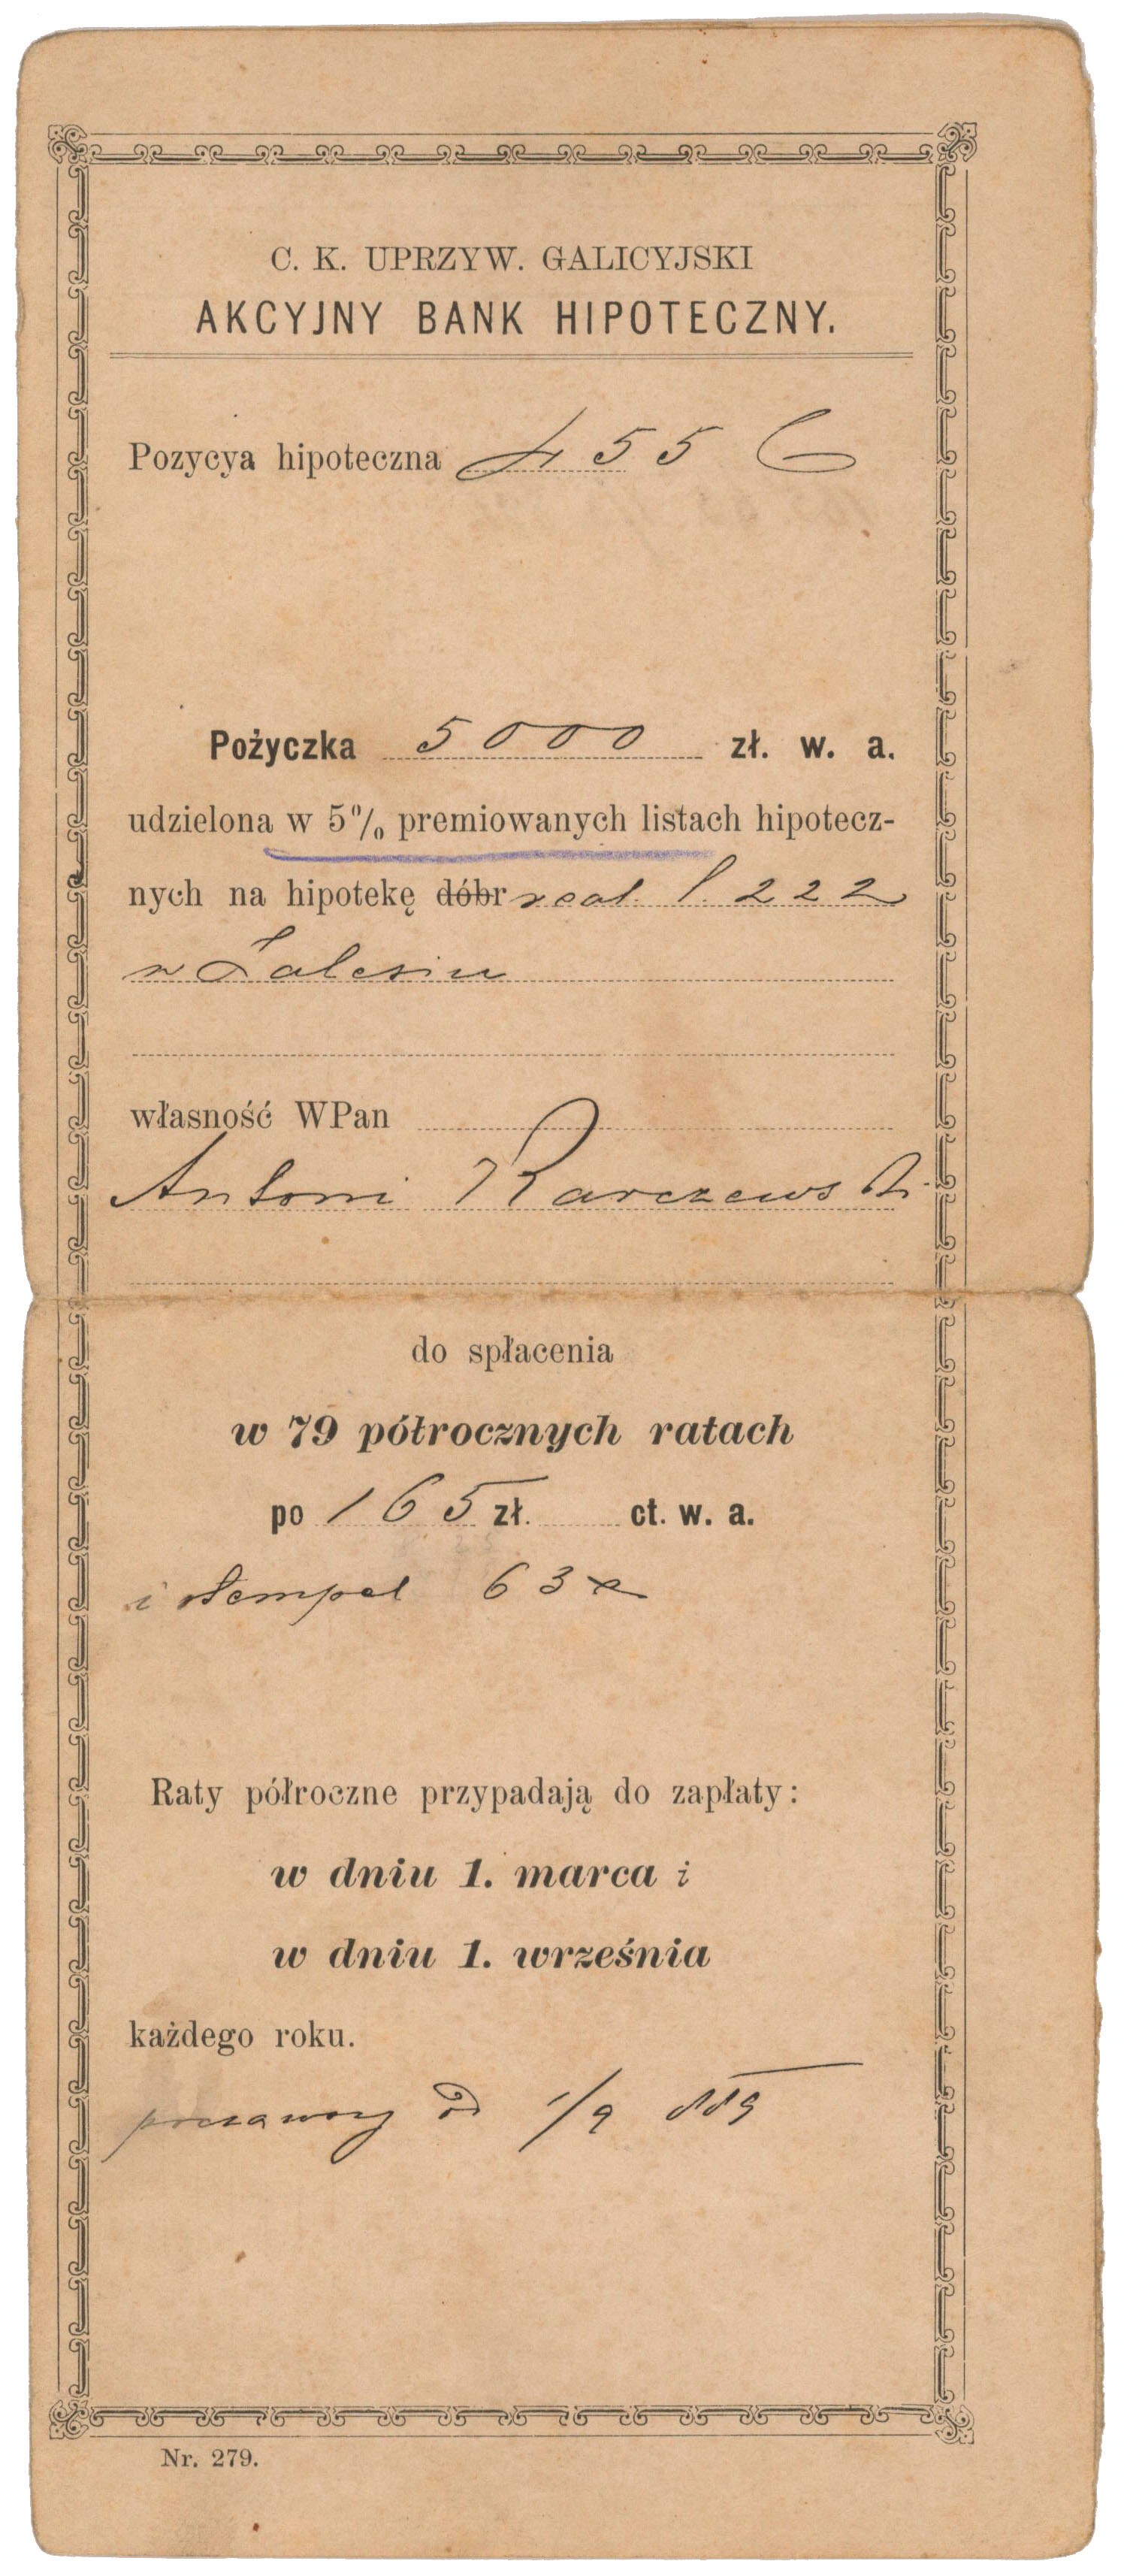 C. K. UPRZYW. GALICYJSKI
AKCYJNY BANK HIPOTECZNY.
Pozycya hipoteczna 455
Pożyczka 5000 zł. w. a.
udzielona w 5% premiowanych listach hipotecz-
nych na hipotekę dóbr real. l. 222
w Zalesiu
własność WPan
Antoni Karczewski
do spłacenia
w 79 półrocznych ratach
po 165 zł. ct. w. a.
i stempel 63
Raty półroczne przypadają do zapłaty:
w dniu 1. marca i
w dniu 1. września
każdego roku.
od 1/9 889
Nr. 279.